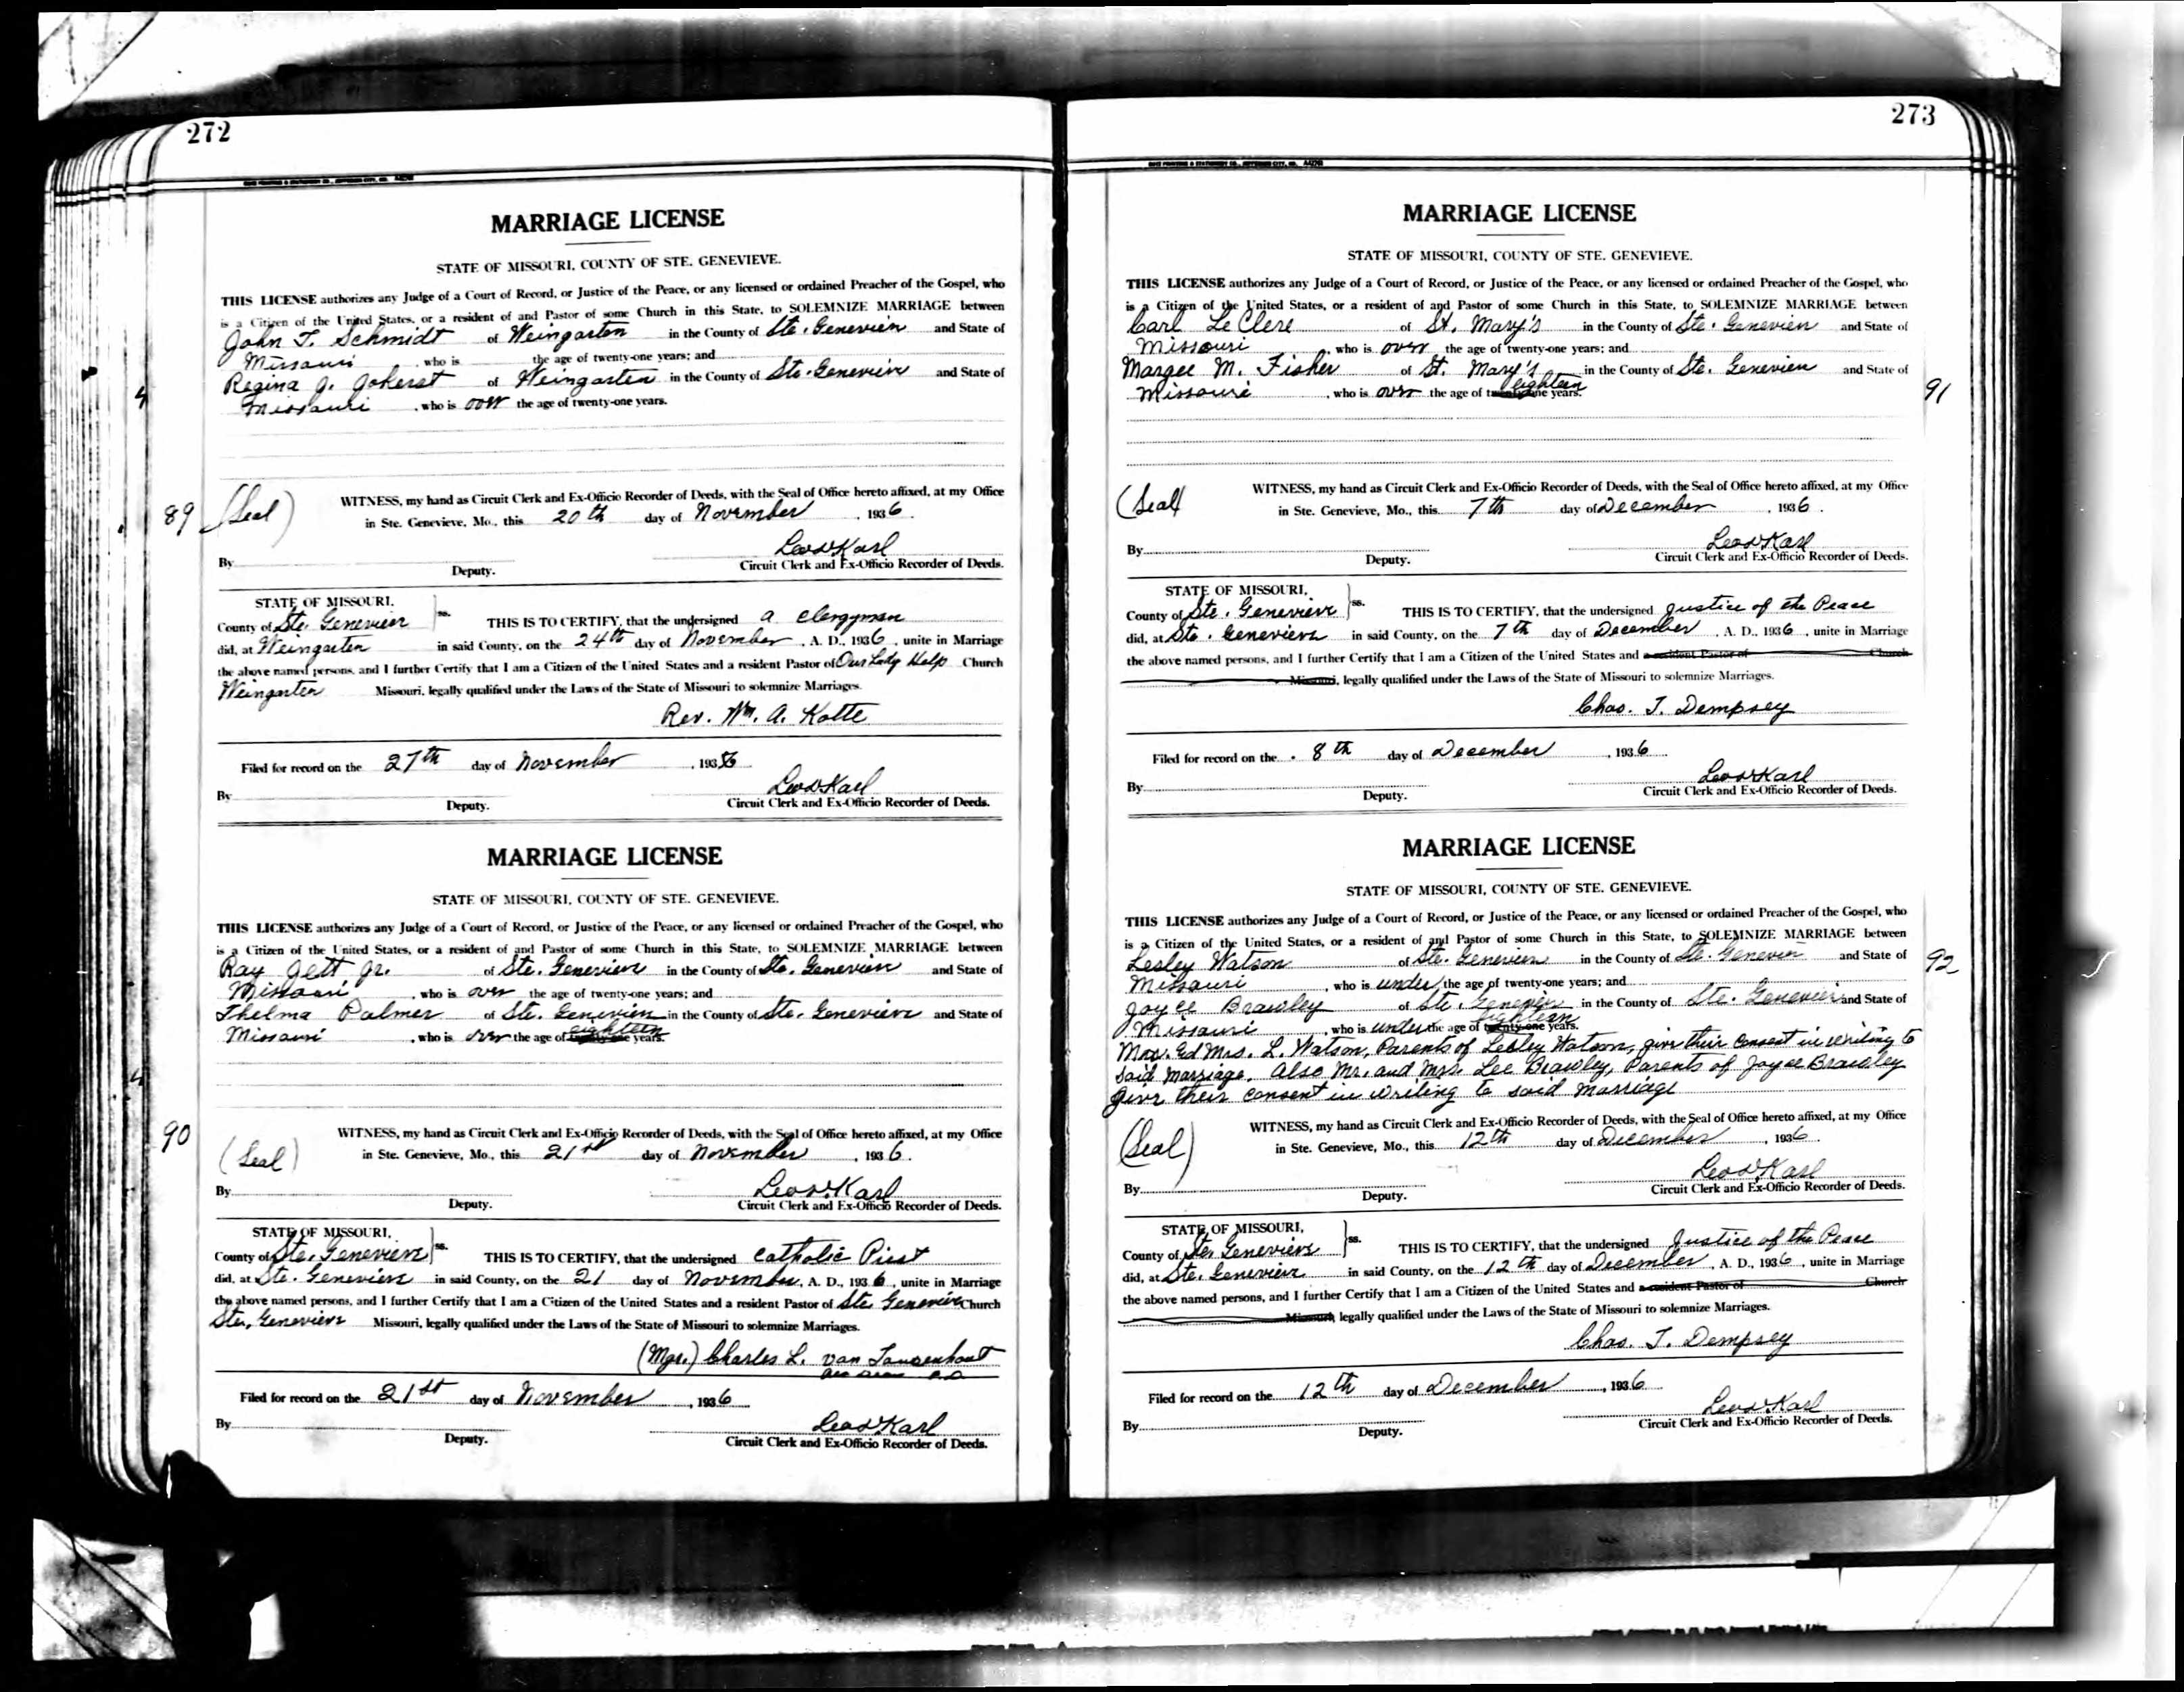 272
MARRIAGE LICENSE
STATE OF MISSOURI, COUNTY OF STE. GENEVIEVE.
THIS LICENSE authorizes any Judge of a Court of Record, or Justice of the Peace, or any licensed or ordained Preacher of the Gospel, who
is a Citizen of the United States, or a resident of and Pastor of some Church in this State, to SOLEMNIZE MARRIAGE between
John T. Schmidt of Weingarten in the County of Ste. Genevieve and State of
Missouri, who is the age of twenty-one years; and
Regina J. Jokerst of Weingarten in the County of Ste. Genevieve and State of
Missouri, who is over the age of twenty-one years.
89 (Seal) WITNESS, my hand as Circuit Clerk and Ex-Officio Recorder of Deeds, with the Seal of Office hereto affixed, at my Office
in Ste. Genevieve, Mo., this 20th day of November, 1936.
Leo W Karl
By Deputy. Circuit Clerk and Ex-Officio Recorder of Deeds.
STATE OF MISSOURI,
County of Ste. Genevieve ss. THIS IS TO CERTIFY, that the undersigned a Clergyman
did, at Weingarten in said County, on the 24th day of November, A. D., 1936, unite in Marriage
the above named persons, and I further Certify that I am a Citizen of the United States and a resident Pastor of Our Lady Help Church
Weingarten Missouri, legally qualified under the Laws of the State of Missouri to solemnize Marriages.
Rev. Wm. A. Kotte
Filed for record on the 27th day of November, 1936
Leo W Karl
By Deputy. Circuit Clerk and Ex-Officio Recorder of Deeds.
MARRIAGE LICENSE
STATE OF MISSOURI, COUNTY OF STE. GENEVIEVE.
THIS LICENSE authorizes any Judge of a Court of Record, or Justice of the Peace, or any licensed or ordained Preacher of the Gospel, who
is a Citizen of the United States, or a resident of and Pastor of some Church in this State, to SOLEMNIZE MARRIAGE between
Ray Jett Jr. of Ste. Genevieve in the County of Ste. Genevieve and State of
Missouri, who is over the age of twenty-one years; and
Thelma Palmer of Ste. Genevieve in the County of Ste. Genevieve and State of
Missouri, who is over the age of eighteen years.
90 (Seal) WITNESS, my hand as Circuit Clerk and Ex-Officio Recorder of Deeds, with the Seal of Office hereto affixed, at my Office
in Ste. Genevieve, Mo., this 21st day of November, 1936.
Leo W Karl
By Deputy. Circuit Clerk and Ex-Officio Recorder of Deeds.
STATE OF MISSOURI,
County of Ste. Genevieve ss. THIS IS TO CERTIFY, that the undersigned Catholic Piest
did, at Ste. Genevieve in said County, on the 21 day of November, A. D., 1936, unite in Marriage
the above named persons, and I further Certify that I am a Citizen of the United States and a resident Pastor of Ste. Genevieve Church
Ste. Genevieve Missouri, legally qualified under the Laws of the State of Missouri to solemnize Marriages.
(Mgr.) Charles L. van Tourenhout
Filed for record on the 21st day of November, 1936
Leo W Karl
By Deputy. Circuit Clerk and Ex-Officio Recorder of Deeds.
273
MARRIAGE LICENSE
STATE OF MISSOURI, COUNTY OF STE. GENEVIEVE.
THIS LICENSE authorizes any Judge of a Court of Record, or Justice of the Peace, or any licensed or ordained Preacher of the Gospel, who
is a Citizen of the United States, or a resident of and Pastor of some Church in this State, to SOLEMNIZE MARRIAGE between
Carl LeClere of St. Mary's in the County of Ste. Genevieve and State of
Missouri, who is over the age of twenty-one years; and
Margee M. Fisher of St. Mary's in the County of Ste. Genevieve and State of
Missouri, who is over the age of eighteen years. 91
(Seal) WITNESS, my hand as Circuit Clerk and Ex-Officio Recorder of Deeds, with the Seal of Office hereto affixed, at my Office
in Ste. Genevieve, Mo., this 7th day of December, 1936.
Leo W Karl
By Deputy. Circuit Clerk and Ex-Officio Recorder of Deeds.
STATE OF MISSOURI,
County of Ste. Genevieve ss. THIS IS TO CERTIFY, that the undersigned Justice of the Peace
did, at Ste. Genevieve in said County, on the 7th day of December, A. D., 1936, unite in Marriage
the above named persons, and I further Certify that I am a Citizen of the United States and a resident Pastor of Church
Missouri, legally qualified under the Laws of the State of Missouri to solemnize Marriages.
Chas. J. Dempsey
Filed for record on the 8th day of December, 1936
Leo W Karl
By Deputy. Circuit Clerk and Ex-Officio Recorder of Deeds.
MARRIAGE LICENSE
STATE OF MISSOURI, COUNTY OF STE. GENEVIEVE.
THIS LICENSE authorizes any Judge of a Court of Record, or Justice of the Peace, or any licensed or ordained Preacher of the Gospel, who
is a Citizen of the United States, or a resident of and Pastor of some Church in this State, to SOLEMNIZE MARRIAGE between
Lesley Watson of Ste. Genevieve in the County of Ste. Genevieve and State of 92
Missouri, who is under the age of twenty-one years; and
Joyce Brawley of Ste. Genevieve in the County of Ste. Genevieve and State of
Missouri, who is under the age of eighteen years.
Mr. Ed Mrs. L. Watson, Parents of Lesley Watson, give their consent in writing to
said marriage. Also Mr. and Mrs. Lee Brawley, Parents of Joyce Brawley
give their consent in writing to said marriage
(Seal) WITNESS, my hand as Circuit Clerk and Ex-Officio Recorder of Deeds, with the Seal of Office hereto affixed, at my Office
in Ste. Genevieve, Mo., this 12th day of December, 1936.
Leo W Karl
By Deputy. Circuit Clerk and Ex-Officio Recorder of Deeds.
STATE OF MISSOURI,
County of Ste. Genevieve ss. THIS IS TO CERTIFY, that the undersigned Justice of the Peace
did, at Ste. Genevieve in said County, on the 12th day of December, A. D., 1936, unite in Marriage
the above named persons, and I further Certify that I am a Citizen of the United States and a resident Pastor of Church
Missouri, legally qualified under the Laws of the State of Missouri to solemnize Marriages.
Chas. J. Dempsey
Filed for record on the 12th day of December, 1936
Leo W Karl
By Deputy. Circuit Clerk and Ex-Officio Recorder of Deeds.